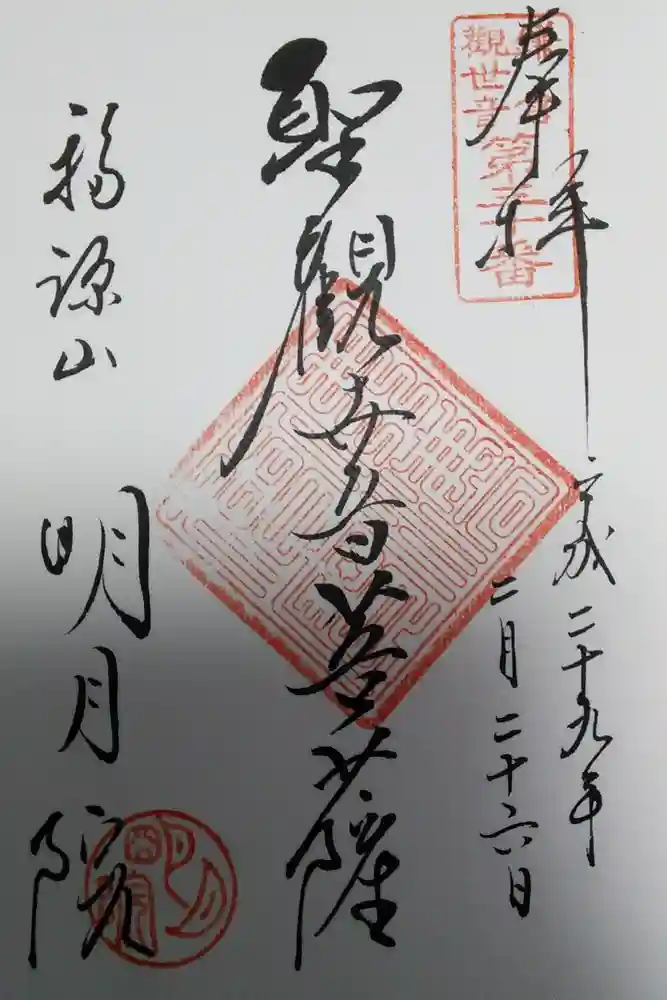 奉拝
鎌倉
觀世音
第三十番
平成二十九年
二月二十六日
聖觀世音菩薩
福源山
明月院